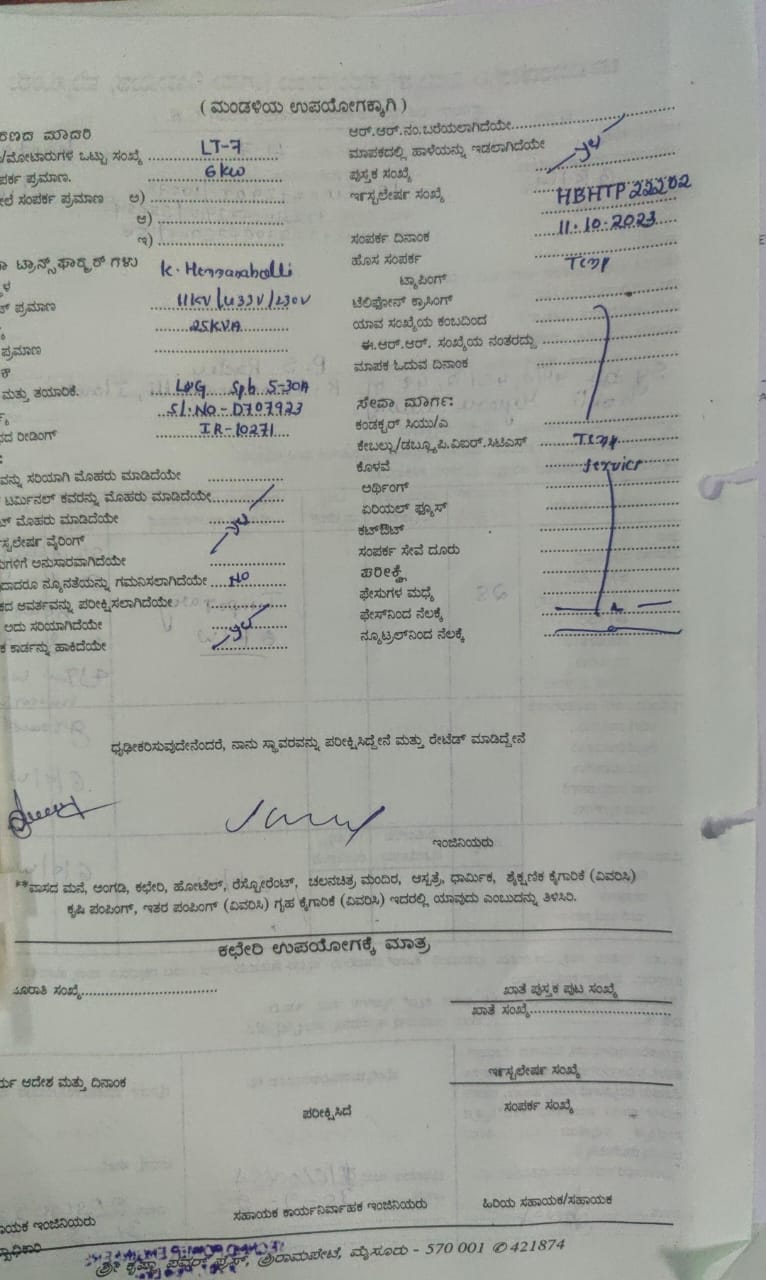 ( ಮಂಡಳಿಯ ಉಪಯೋಗಕ್ಕಾಗಿ )
ರಣದ ಮಾದರಿ LT-7
/ಮೋಟಾರುಗಳ ಒಟ್ಟು ಸಂಖ್ಯೆ 6kw
ಪರ್ಕ ಪ್ರಮಾಣ.
ಲೆ ಸಂಪರ್ಕ ಪ್ರಮಾಣ ಅ)
ಆ)
ಇ)
ಾ ಟ್ರಾನ್ಸ್‌ಫಾರ್ಮರ್‌ಗಳು
ಳ
ಟ್ ಪ್ರಮಾಣ 11KV/433V/230V
25KVA
ಪ್ರಮಾಣ
ಕ
ಮತ್ತು ತಯಾರಿಕೆ. L&G 5-30A
Sl.No-D707923
ದ ರೀಡಿಂಗ್ IR-10271
:
ವನ್ನು ಸರಿಯಾಗಿ ಮೊಹರು ಮಾಡಿದೆಯೇ
ಟರ್ಮಿನಲ್ ಕವರನ್ನು ಮೊಹರು ಮಾಡಿದೆಯೇ
ಟ್ ಮೊಹರು ಮಾಡಿದೆಯೇ yes
ಸ್ಟಲೇಷರ್ ವೈರಿಂಗ್
ುಗಳಿಗೆ ಅನುಸಾರವಾಗಿದೆಯೇ
ದಾದರೂ ನ್ಯೂನತೆಯನ್ನು ಗಮನಿಸಲಾಗಿದೆಯೇ No
ಕದ ಆವರ್ತವನ್ನು ಪರೀಕ್ಷಿಸಲಾಗಿದೆಯೇ
ಅದು ಸರಿಯಾಗಿದೆಯೇ yes
ಕ ಕಾರ್ಡನ್ನು ಹಾಕಿದೆಯೇ
ಆರ್.ಆರ್.ನಂ.ಬರೆಯಲಾಗಿದೆಯೇ
ಮಾಪಕದಲ್ಲಿ ಹಾಳೆಯನ್ನು ಇಡಲಾಗಿದೆಯೇ yes
ಪುಸ್ತಕ ಸಂಖ್ಯೆ
ಇನ್ಸ್ಟಲೇಷರ್ ಸಂಖ್ಯೆ HBHTP22202
ಸಂಪರ್ಕ ದಿನಾಂಕ 11.10.2023
ಹೊಸ ಸಂಪರ್ಕ Temp
ಟ್ಯಾಪಿಂಗ್
ಟೆಲಿಫೋನ್ ಕ್ರಾಸಿಂಗ್
ಯಾವ ಸಂಖ್ಯೆಯ ಕಂಬದಿಂದ
ಈ.ಆರ್.ಆರ್. ಸಂಖ್ಯೆಯ ನಂತರದ್ದು
ಮಾಪಕ ಓದುವ ದಿನಾಂಕ
ಸೇವಾ ಮಾರ್ಗ:
ಕಂಡಕ್ಟರ್ ಸಿಯು/ಎ
ಕೇಬಲ್ಲು/ಡಬ್ಲ್ಯೂಪಿ.ವಿಐಆರ್.ಸಿಟಿಎಸ್ Temp
ಕೊಳವೆ service
ಅರ್ಥಿಂಗ್
ಏರಿಯಲ್ ಫ್ಯೂಸ್
ಕಟ್‌ಔಟ್
ಸಂಪರ್ಕ ಸೇವೆ ದೂರು
ಪರೀಕ್ಷೆ
ಫೇಸುಗಳ ಮಧ್ಯೆ
ಫೇಸ್‌ನಿಂದ ನೆಲಕ್ಕೆ
ನ್ಯೂಟ್ರಲ್‌ನಿಂದ ನೆಲಕ್ಕೆ
ಧೃಢೀಕರಿಸುವುದೇನೆಂದರೆ, ನಾನು ಸ್ಥಾವರವನ್ನು ಪರೀಕ್ಷಿಸಿದ್ದೇನೆ ಮತ್ತು ರೇಟೆಡ್ ಮಾಡಿದ್ದೇನೆ
ಇಂಜಿನಿಯರು
**ವಾಸದ ಮನೆ, ಅಂಗಡಿ, ಕಛೇರಿ, ಹೋಟೆಲ್, ರೆಸ್ಟೋರೆಂಟ್, ಚಲನಚಿತ್ರ ಮಂದಿರ, ಆಸ್ಪತ್ರೆ, ಧಾರ್ಮಿಕ, ಶೈಕ್ಷಣಿಕ ಕೈಗಾರಿಕೆ (ವಿವರಿಸಿ)
ಕೃಷಿ ಪಂಪಿಂಗ್, ಇತರ ಪಂಪಿಂಗ್ (ವಿವರಿಸಿ) ಗೃಹ ಕೈಗಾರಿಕೆ (ವಿವರಿಸಿ) ಇದರಲ್ಲಿ ಯಾವುದು ಎಂಬುದನ್ನು ತಿಳಿಸಿರಿ.
ಕಛೇರಿ ಉಪಯೋಗಕ್ಕೆ ಮಾತ್ರ
ಸಂಖ್ಯೆ
ಖಾತೆ ಪುಸ್ತಕ ಪುಟ ಸಂಖ್ಯೆ
ಖಾತೆ ಸಂಖ್ಯೆ
ಇನ್ಸ್ಟಲೇಷರ್ ಸಂಖ್ಯೆ
ರ್ಯ ಆದೇಶ ಮತ್ತು ದಿನಾಂಕ
ಪರೀಕ್ಷಿಸಿದೆ
ಸಂಪರ್ಕ ಸಂಖ್ಯೆ
ಾಯಕ ಇಂಜಿನಿಯರು
ಸಹಾಯಕ ಕಾರ್ಯನಿರ್ವಾಹಕ ಇಂಜಿನಿಯರು
ಹಿರಿಯ ಸಹಾಯಕ/ಸಹಾಯಕ
ಶ್ರೀ ಕೃಷ್ಣಾ ಪವರ್ ಪ್ರೆಸ್, ಶ್ರೀರಾಮಪೇಟೆ, ಮೈಸೂರು - 570 001 ✆ 421874